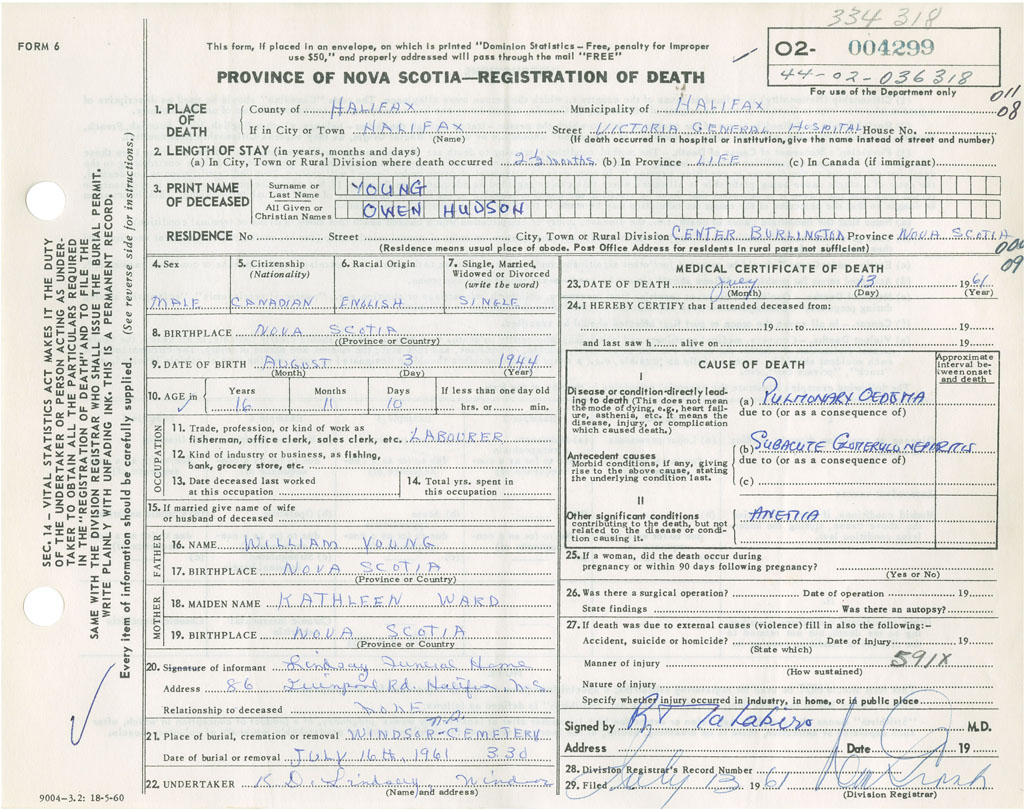 334 318
FORM 6
This form, if placed in an envelope, on which is printed "Dominion Statistics – Free, penalty for improper
use $50," and properly addressed will pass through the mail "FREE"
02- 004299
44-02-036318
For use of the Department only
PROVINCE OF NOVA SCOTIA—REGISTRATION OF DEATH
011
08
1. PLACE OF DEATH
County of HALIFAX Municipality of HALIFAX
If in City or Town HALIFAX Street VICTORIA GENERAL HOSPITAL House No.
(Name) (If death occurred in a hospital or institution, give the name instead of street and number)
2. LENGTH OF STAY (in years, months and days)
(a) In City, Town or Rural Division where death occurred 2½ months (b) In Province LIFE (c) In Canada (if immigrant)
3. PRINT NAME OF DECEASED
Surname or Last Name YOUNG
All Given or Christian Names OWEN HUDSON
RESIDENCE No Street City, Town or Rural Division CENTER BURLINGTON Province NOVA SCOTIA
(Residence means usual place of abode. Post Office Address for residents in rural parts not sufficient)
000
09
4. Sex MALE
5. Citizenship (Nationality) CANADIAN
6. Racial Origin ENGLISH
7. Single, Married, Widowed or Divorced (write the word) SINGLE
8. BIRTHPLACE NOVA SCOTIA
(Province or Country)
9. DATE OF BIRTH AUGUST 3 1944
(Month) (Day) (Year)
10. AGE in Years Months Days If less than one day old
16 11 10 hrs. or min.
OCCUPATION
11. Trade, profession, or kind of work as
fisherman, office clerk, sales clerk, etc. LABOURER
12. Kind of industry or business, as fishing,
bank, grocery store, etc.
13. Date deceased last worked
at this occupation
14. Total yrs. spent in
this occupation
15. If married give name of wife
or husband of deceased
FATHER
16. NAME WILLIAM YOUNG
17. BIRTHPLACE NOVA SCOTIA
(Province or Country)
MOTHER
18. MAIDEN NAME KATHLEEN WARD
19. BIRTHPLACE NOVA SCOTIA
(Province or Country)
20. Signature of informant Lindsay Funeral Home
Address 86 Quinpool Rd. Halifax N.S
Relationship to deceased NONE
21. Place of burial, cremation or removal WINDSOR-CEMETERY
Date of burial or removal JULY 16TH, 1961 3.30
22. UNDERTAKER Lindsay, Windsor
(Name and address)
9004–3.2: 18-5-60
MEDICAL CERTIFICATE OF DEATH
23. DATE OF DEATH July 13 1961
(Month) (Day) (Year)
24. I HEREBY CERTIFY that I attended deceased from:
19 to 19
and last saw h alive on 19
CAUSE OF DEATH
Approximate interval between onset and death
I
Disease or condition directly leading to death (This does not mean
the mode of dying, e.g., heart failure, asthenia, etc. It means the
disease, injury, or complication
which caused death.)
(a) PULMONARY OEDEMA
due to (or as a consequence of)
Antecedent causes
Morbid conditions, if any, giving
rise to the above cause, stating
the underlying condition last.
(b) SUBACUTE GLOMERULONEPHRITIS
due to (or as a consequence of)
(c)
II
Other significant conditions
contributing to the death, but not
related to the disease or condition causing it.
ANEMIA
25. If a woman, did the death occur during
pregnancy or within 90 days following pregnancy?
(Yes or No)
26. Was there a surgical operation? Date of operation 19
State findings Was there an autopsy?
27. If death was due to external causes (violence) fill in also the following:–
Accident, suicide or homicide? Date of injury 19
(State which)
Manner of injury 591X
(How sustained)
Nature of injury
Specify whether injury occurred in industry, in home, or in public place
Signed by M.D.
Address Date 19
28. Division Registrar's Record Number
29. Filed July 13 1961
(Division Registrar)
SEC. 14 – VITAL STATISTICS ACT MAKES IT THE DUTY
OF THE UNDERTAKER OR PERSON ACTING AS UNDER-
TAKER TO OBTAIN ALL THE PARTICULARS REQUIRED
IN THE "REGISTRATION OF DEATH" AND TO FILE THE
SAME WITH THE DIVISION REGISTRAR WHO SHALL ISSUE THE BURIAL PERMIT.
WRITE PLAINLY WITH UNFADING INK. THIS IS A PERMANENT RECORD.
Every item of information should be carefully supplied. (See reverse side for instructions.)